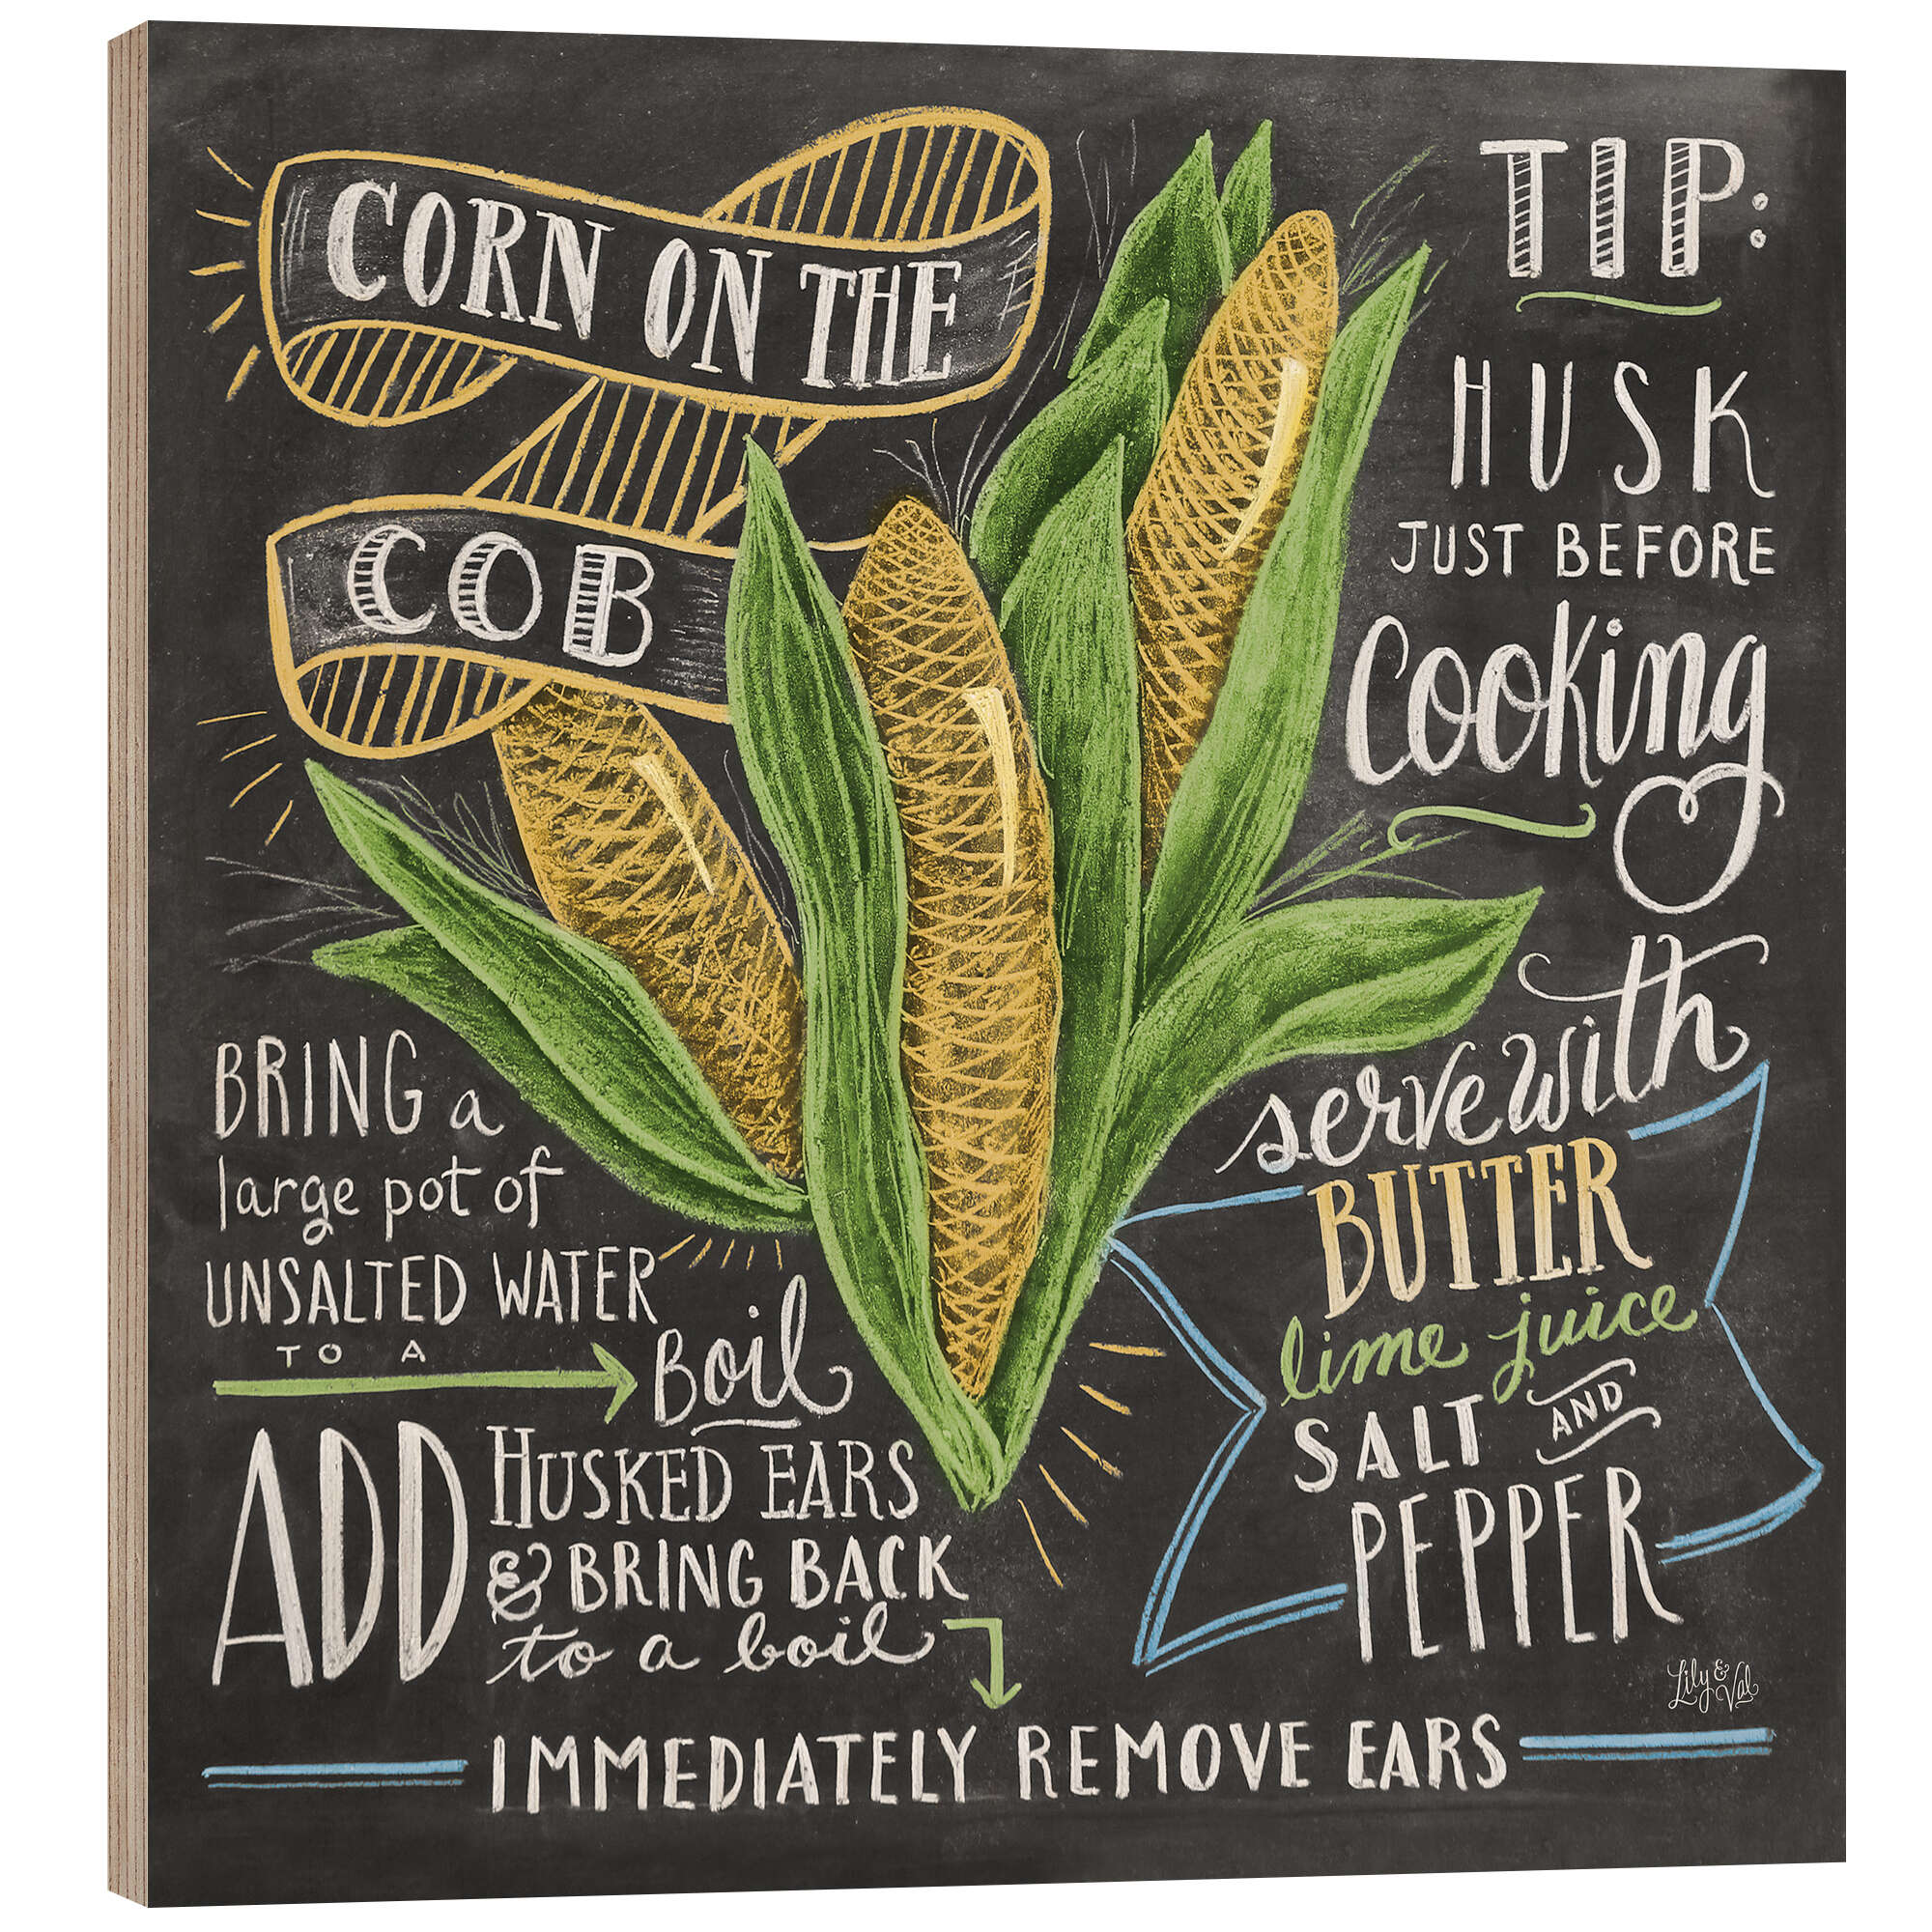 CORN ON THE
COB
TIP:
HUSK
JUST BEFORE
Cooking
serve with
BUTTER
lime juice
SALT AND
PEPPER
BRING a
large pot of
UNSALTED WATER
TO A
Boil
ADD HUSKED EARS
& BRING BACK
to a boil
IMMEDIATELY REMOVE EARS
Lily & Val